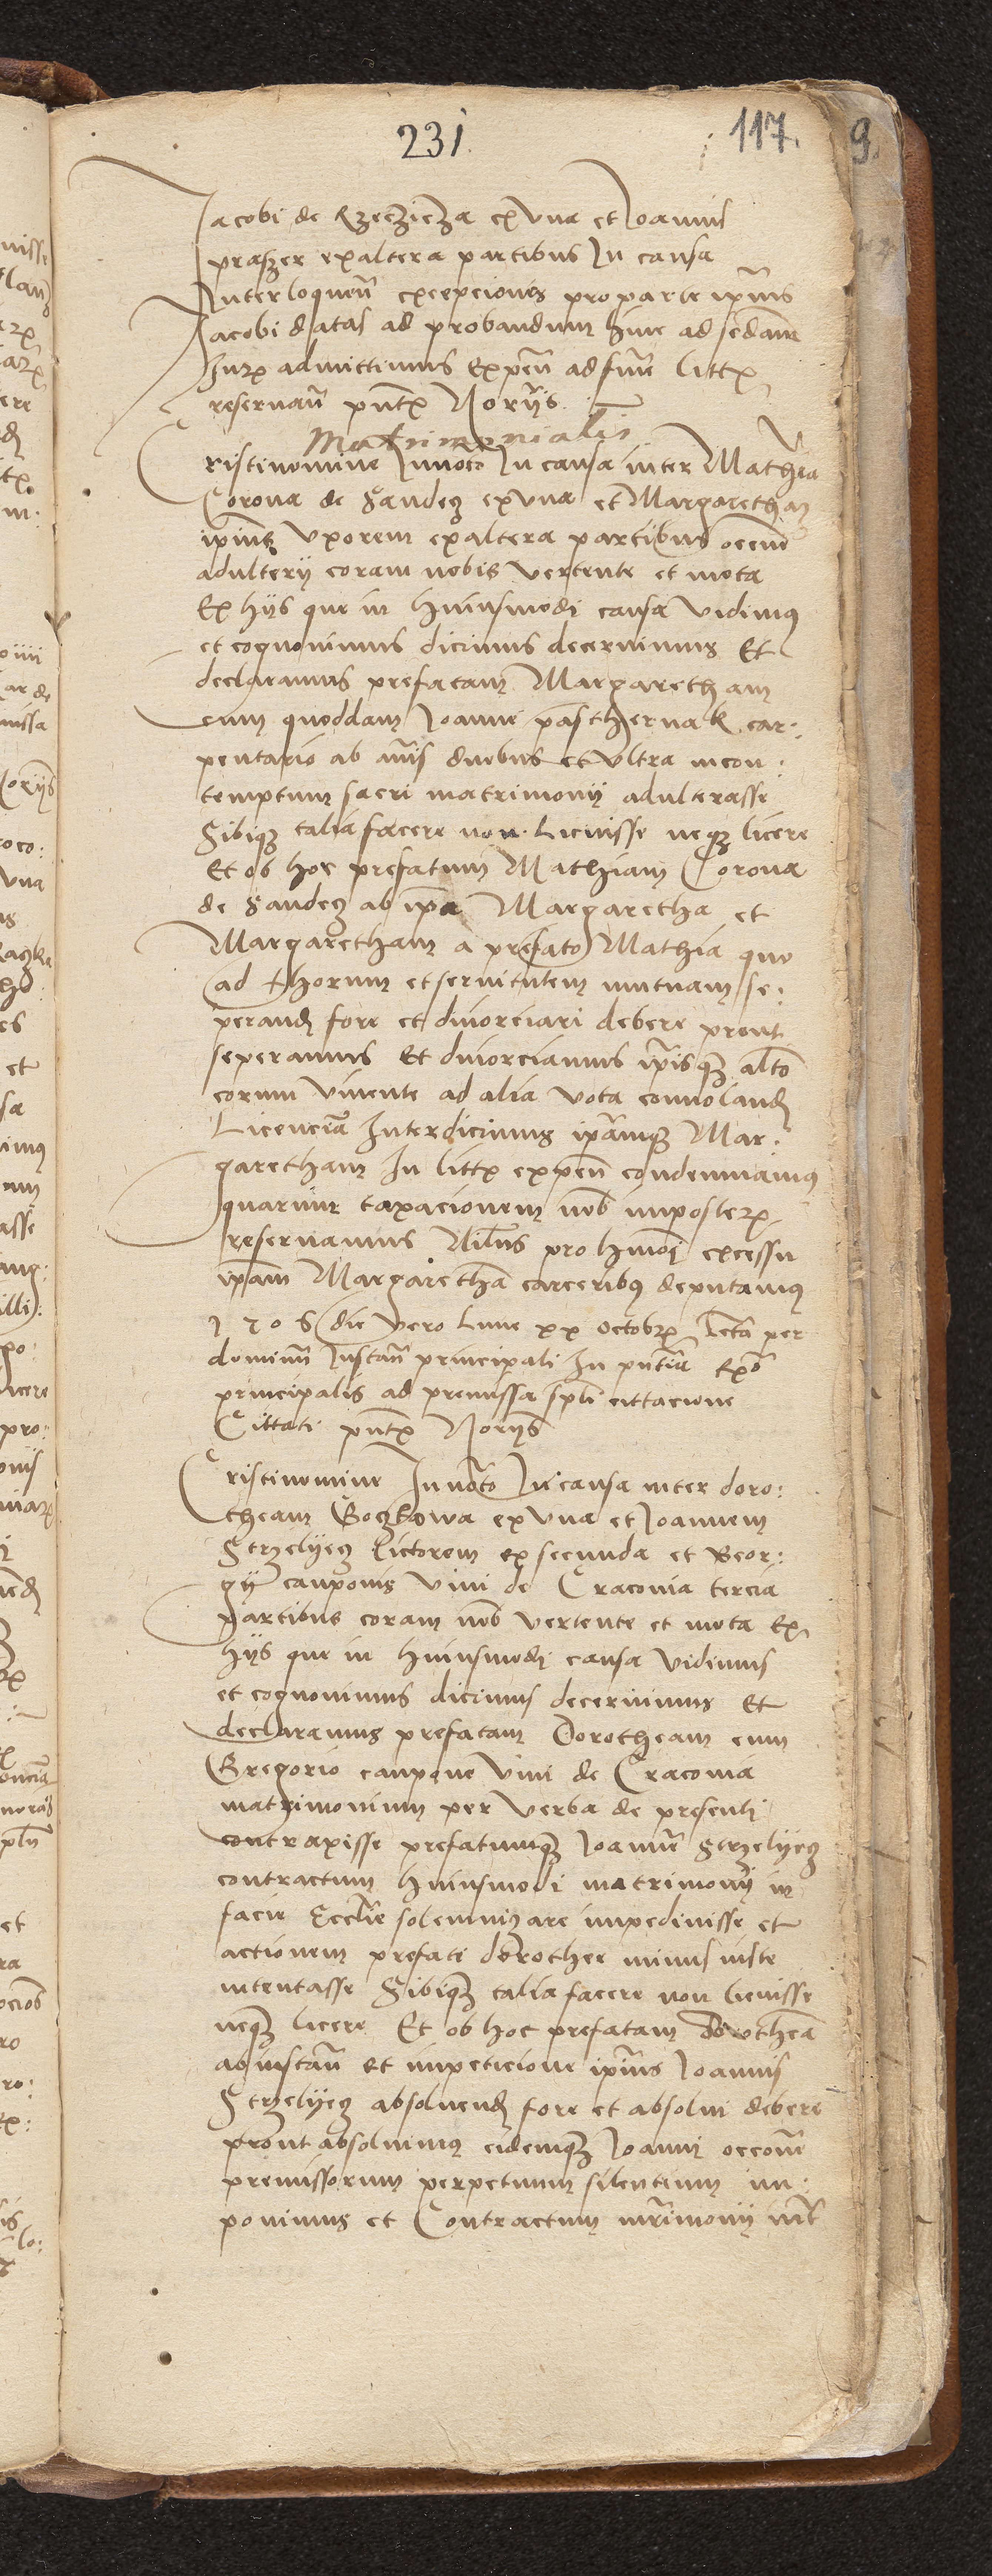 231. 117. 9.
Jacobi de Rzeczicza ex una et Joannis
praszer ex altera partibus In causa
Interloquen̄ excepciones pro parte ip̄ius
Jacobi datas ad probandum hinc ad sedam̄
Jur admittimus Expen̄ ad finē littꝝ
reservan̄ pn̄tꝝ Noriis
Matrimonialis
Cristi nomine Invoto In causa inter Mathia
Corona de Sandecz ex una et Margaretham
ip̄ius uxorem ex altera partibus occōne
adulterii coram nobis vertente et mota
Ex hiis que in huiusmodi causa vidimus
et cognovimus dicimus decernimus Et
declaramus prefatam Margaretham
cum quoddam Joanne pasthernak car:
pentario ab annis duobus et ultra in con:
temptum sacri matrimonii adulterasse
Sibiqꝫ talia facere non licuisse neqꝫ licere
Et ob hoc prefatum Mathiam Corona
de Sandecz ab ip̄a Margaretha et
Margaretham a prefato Mathia quo
ad thorum et servitutem mutuam se:
perand fore et divorciari debere prout
seperamus Et divorciamus ip̄isqꝫ altō
eorum vivente ad alia vota convoland
Licenciā Interdicimus ipāmqꝫ Mar:
garetham In littꝝ expen̄ condemnamus
quarum taxacionem nob imposterꝝ
reservamus Nilus pro hmōi excessu
ip̄am Margarethā carceribus deputamus
1506 die vero Lune xx octobrꝝ Lcta per
dominū Instan̄ principali In pn̄tia Exō
principalis ad premissa spli cittacione
Cittati pn̄tꝝ Noriis
Cristi nomine Invoto In causa inter doro:
theam Boczkowa ex una et Joannem
Strzelyecz lictorem ex secunda et Geor:
gii cauponis vini de Cracovia tercia
partibus coram nob vertente et mota Ex
hiis que in huiusmodi causa vidimus
et cognovimus dicimus decernimus Et
declaramus prefatam Dorotheam cum
Gregorio caupone vini de Cracovia
matrimonium per verba de presenti
contraxisse prefatumqꝫ Joannē Strzelyecz
contractum huiusmodi matrimonii in
facie Eccl̄ie solemnizare impedivisse et
actionem prefate dorothee minus iuste
intentasse Sibiqꝫ talia facere non licuisse
neqꝫ licere Et ob hoc prefatam dorotheā
ab instan̄ et impeticione ip̄ius Joannis
Strzelyecz absolvend fore et absolvi debere
prout absolvimus eidemqꝫ Joanni occōne
premissorum perpetuum silentium im:
ponimus et Contractum mr̄imonii int